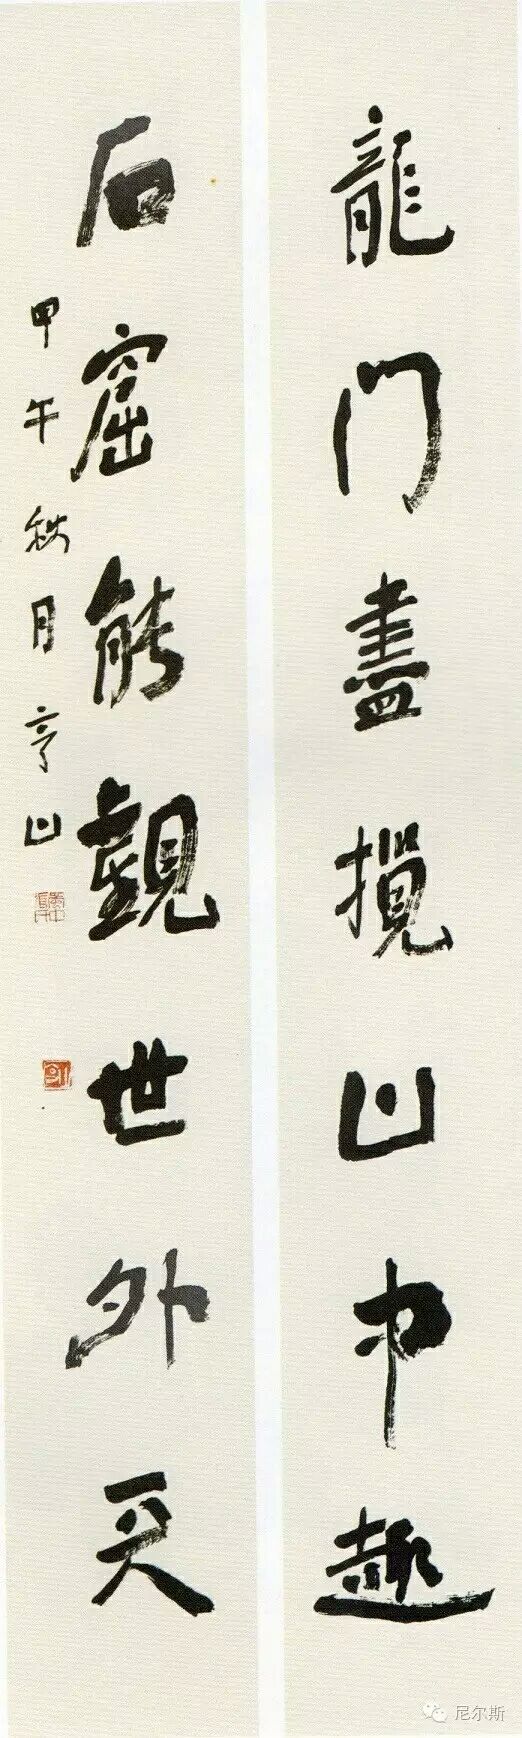 龍门盡揽山中趣
石窟能觀世外天
甲午秋月亨山
尼尔斯